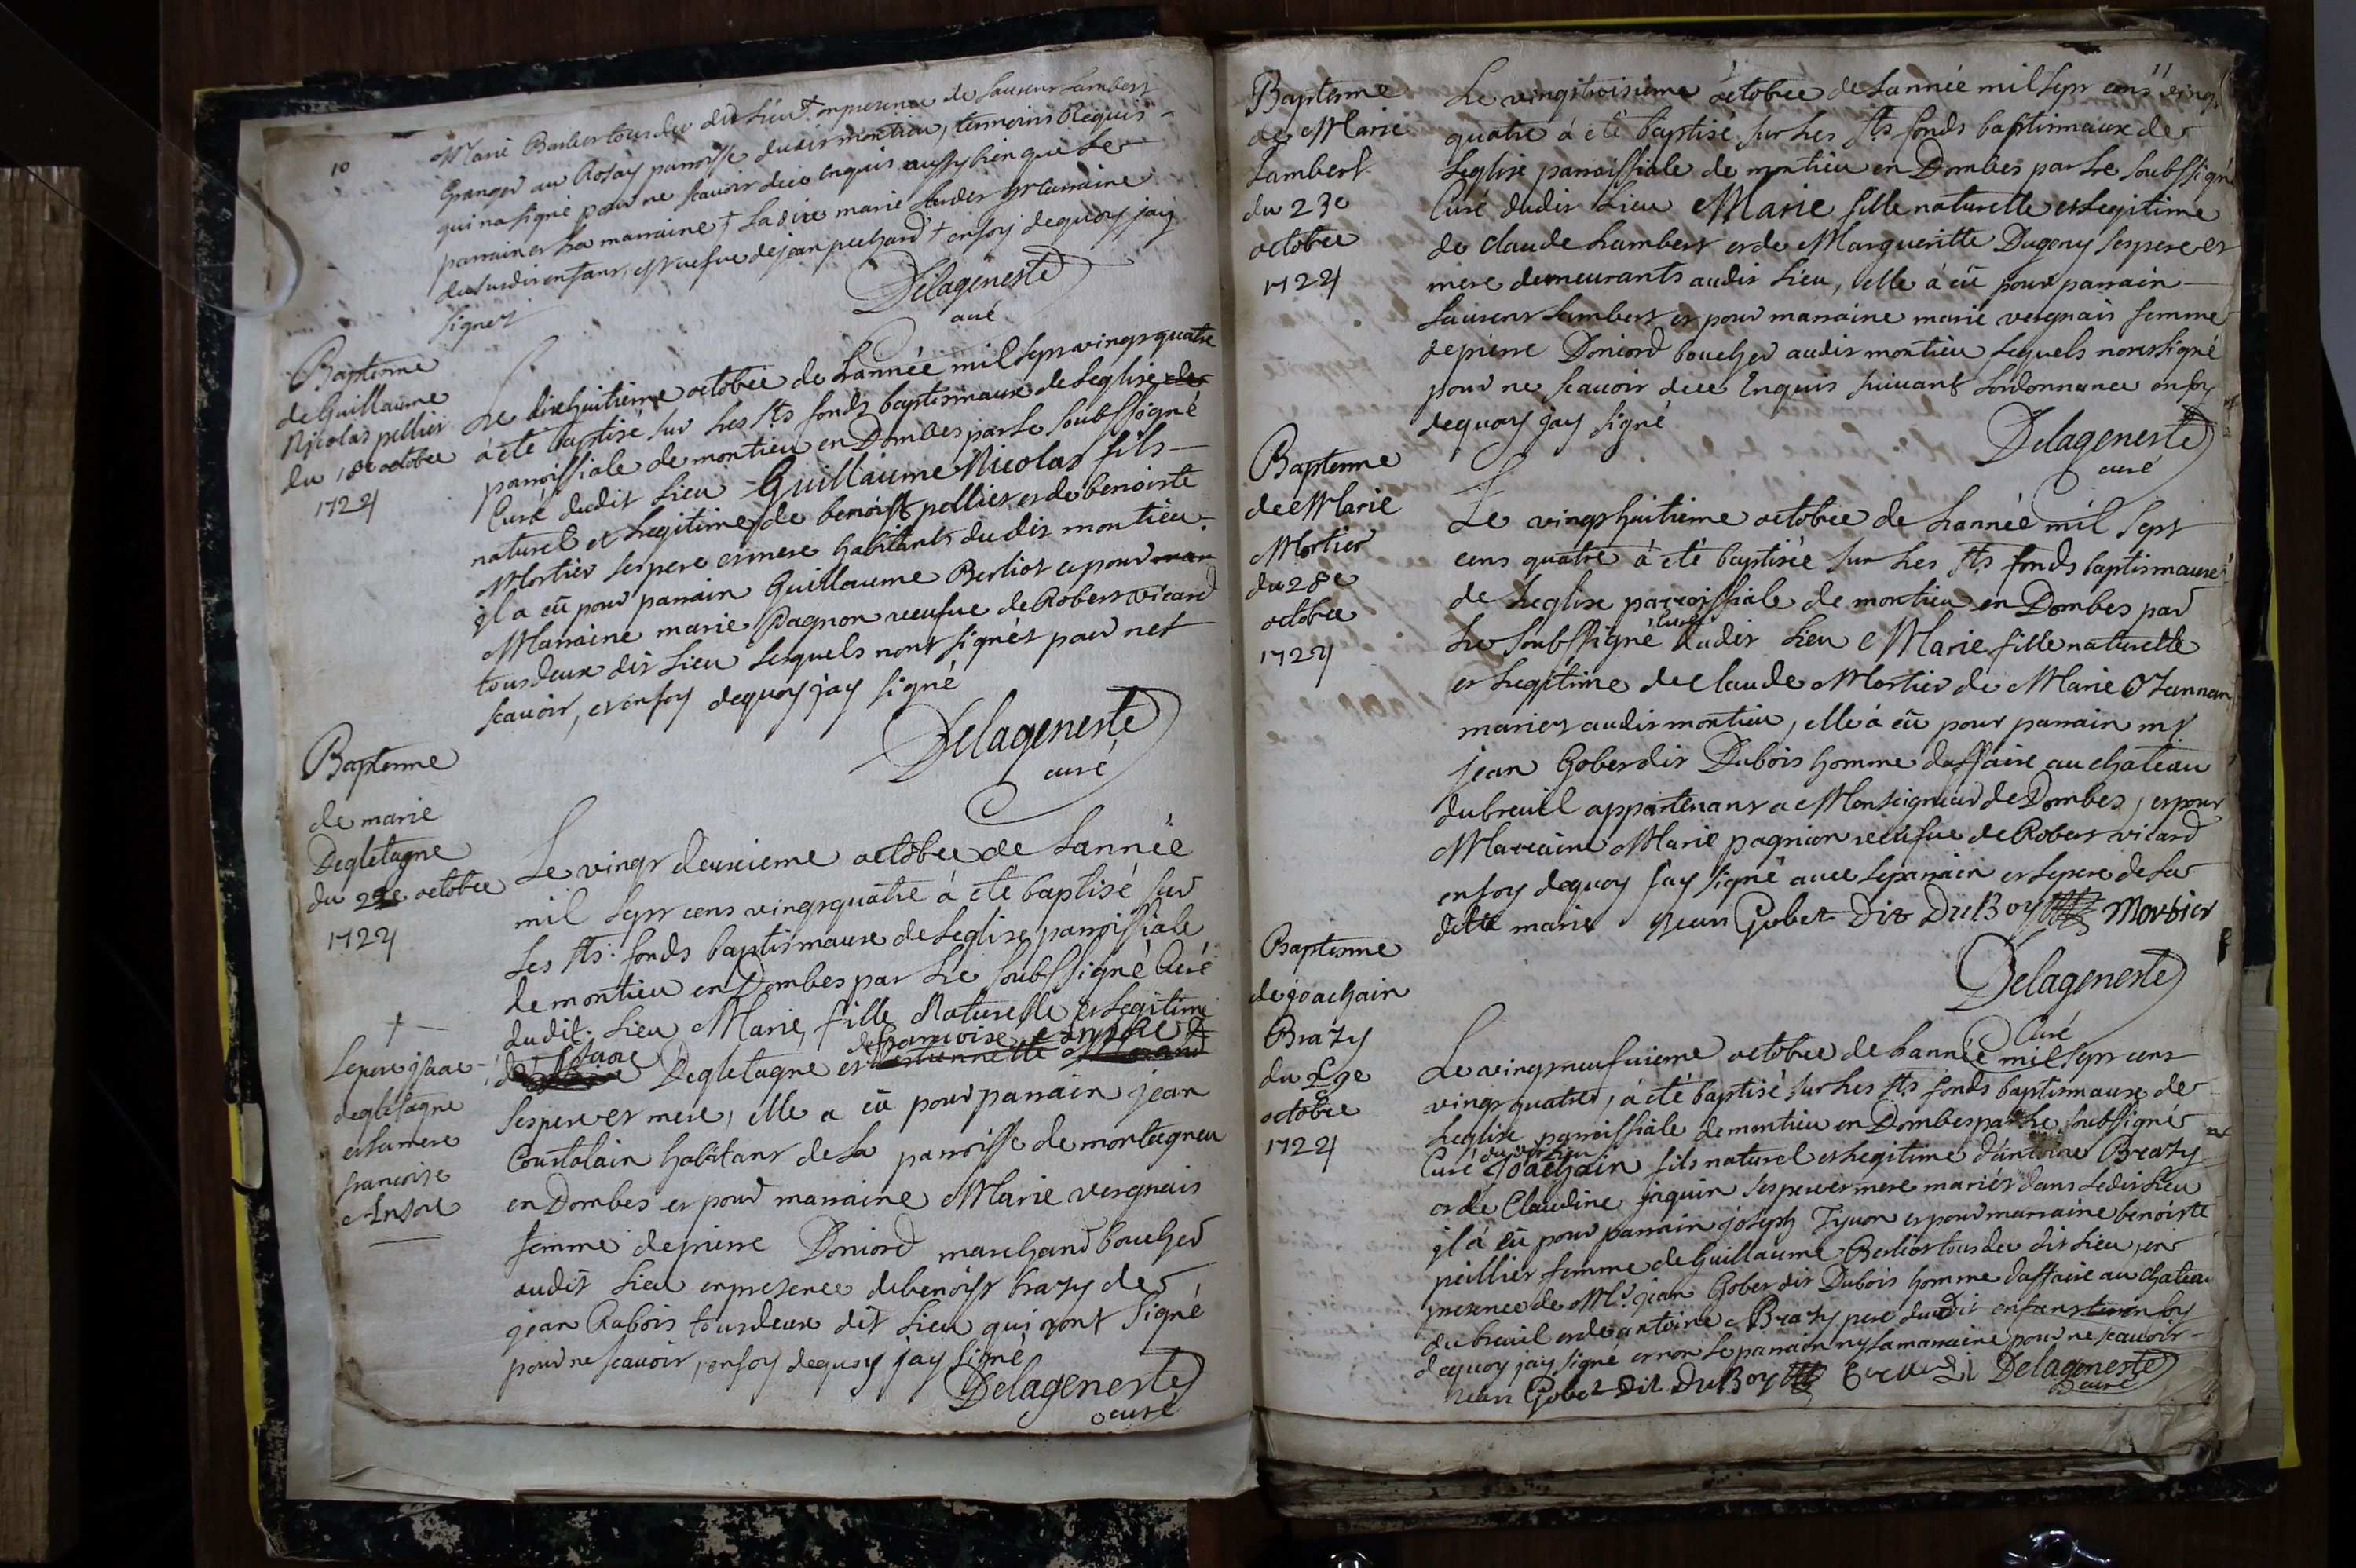 10
Marie Barbier tous deux dit Lieu † en presence de Laurens Lambert
Granger au Rosay parroisse dudit montieu, temoins Requis
qui na signé pour ne scavoir de ce enquis aussy bien que Le
parrain et La marraine † La dite marie
du susdit enfant, est veufve de jean † en foy dequoy jay
signer
Delageneste
curé
Baptemme
de Guillaume
Nicolas pellier
du 18e octobre
1724
Le dixhuitieme octobre de Lannée mil sept vingt quatre
à eté baptisé sur Les Sts fonds baptismaux de Leglise de
parroissiale de montieu en Dombes par Le soubssigné
Curé dudit Lieu Guillaume Nicolas fils
naturel et Legitime de benoist pellier et de benoiste
Mortier ses pere et mere habitants dudit montieu
il a eü pour parrain Guillaume Berliot et pour mar
Marraine marie Pagnon veufve de Robert vicard
tous deux dit Lieu Lesquels nont signés pour net
scavoir, et en foy dequoy jay signé
Delageneste
curé
Baptemme
de marie
Degletagne
du 22e octobre
1724
Le vingt deuxieme octobre de Lannée
mil sept cens vingt quatre à eté baptisé sur
Les Sts fonds baptismaux de Leglise parroissiale
de montieu en Dombes par Le soubssigné Curé
dudit Lieu Marie, fille Naturelle et Legitime
de françoise
de Isaac Degletagne et
ses pere et mere, elle a eü pour parrain jean
Courtalain habitant de La parroisse de monteigneu
en Dombes et pour marraine Marie vergnais
femme de pierre Doniord marchand boucher
audit Lieu en presence de benoist brazy de
jean Rabois tous deux dit Lieu qui nont signé
pour ne scavoir, en foy dequoy jay signé
Delageneste
curé
†
Le pere isaac
degletagne
et la mere
francoise
11
Baptemme
de Marie
Lambert
du 23e
octobre
1724
Le vingt troisieme octobre de Lannée mil sept cens vingt
quatre à eté baptisé sur Les Sts fonds baptismaux de
Leglise parroissiale de montieu en Dombes par Le soubssigné
Curé dudit Lieu Marie fille naturelle et Legitime
de Claude Lambert et de Margueritte Dugeny ses pere et
mere demeurants audit Lieu, Celle à eü pour parrain
Laurens Lambert et pour marraine marie vergnais femme
de pierre Doniord boucher audit montieu Lequels nont signé
pour ne scavoir de ce Enquis suivant Lordonnance en foy
dequoy jay signé
Delageneste
curé
Baptemme
de Marie
Mortier
du 28e
octobre
1724
Le vingt huitieme octobre de Lannée mil sept
cens quatre à eté baptisée sur Les Sts fonds baptismaux
de Leglise parroissiale de montieu en Dombes par
Le soubssigné Curé dudit Lieu Marie fille naturelle
et Legitime de Claude Mortier de Marie
mariés audit montieu, elle à eü pour parrain mr
jean Gobet dit Dubois homme daffaire au chateau
du breuil appartenant a Monseigneur de Dombes, et pour
Marraine Marie pagnion veufve de Robert vicard
en foy dequoy jay signé avec Le parrain et Le pere de La
ditte marie Jean Gobet Dit DuBoy Mortier
Delageneste
Curé
Baptemme
de joachain
Brazy
du 29e
octobre
1724
Le vingt neufvieme octobre de Lannée mil sept cens
vingt quatre, à eté baptisé sur Les Sts fonds baptismaux de
Leglise parroissiale de montieu en Dombes par Le soubssigné
Curé dudit Lieu joachain fils naturel et Legitime d'antoine Brazy
et de Claudine jaquin ses pere et mere mariés dans Ledit Lieu
il à eü pour parrain joseph Tyvon et pour marraine benoiste
peillier femme de Guillaume Berliot tous deu dit Lieu, en
presence de Mr. jean Gobet dit Dubois homme daffaire au chateau
du breuil et de antoine Brazy pere dudit enfant en foy
dequoy jay signé et non Le parrain ny La marraine pour ne scavoir
Jean Gobet Dit DuBoy Delageneste
curé